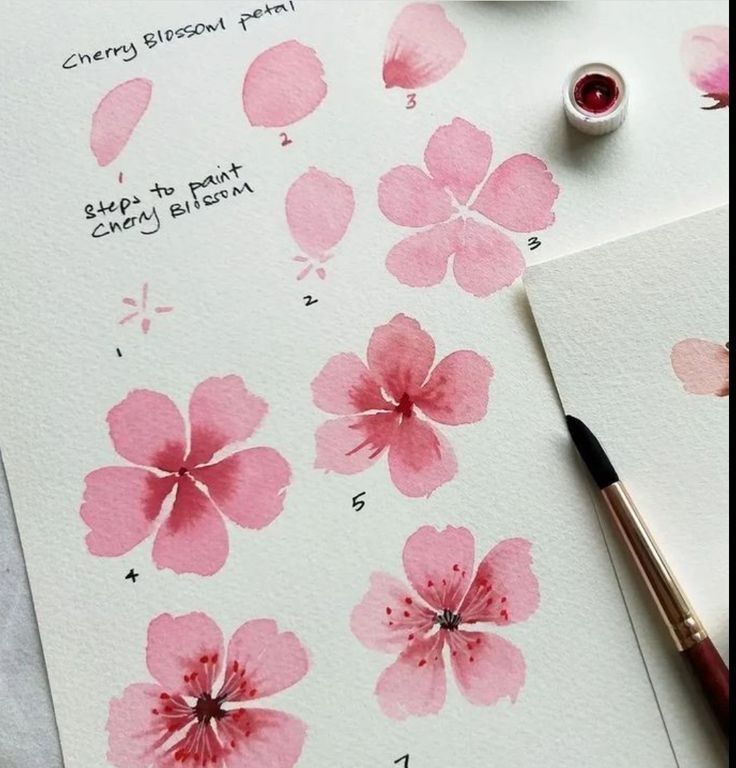 Cherry Blossom petal
1
2
3
Steps to paint
Cherry Blossom
1
2
3
4
5
7